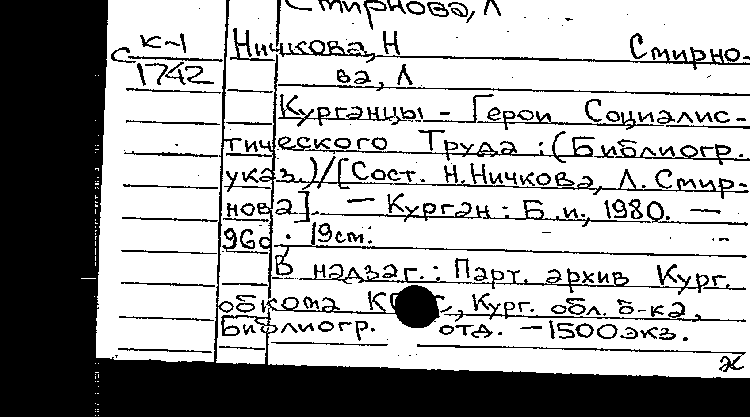 Смирнова, Л
К-1 Ничкова, Н Смирно-
С 1742 ва, Л
Курганцы - Герои Социалис-
тического Труда : (Библиогр.
указ.)/[Сост. Н.Ничкова, Л.Смир-
нова]. — Курган : Б.и., 1980. —
96с.; 19см.
В надзаг.: Парт. архив Кург.
обкома КПСС, Кург. обл. б-ка,
Библиогр. отд. — 1500экз.